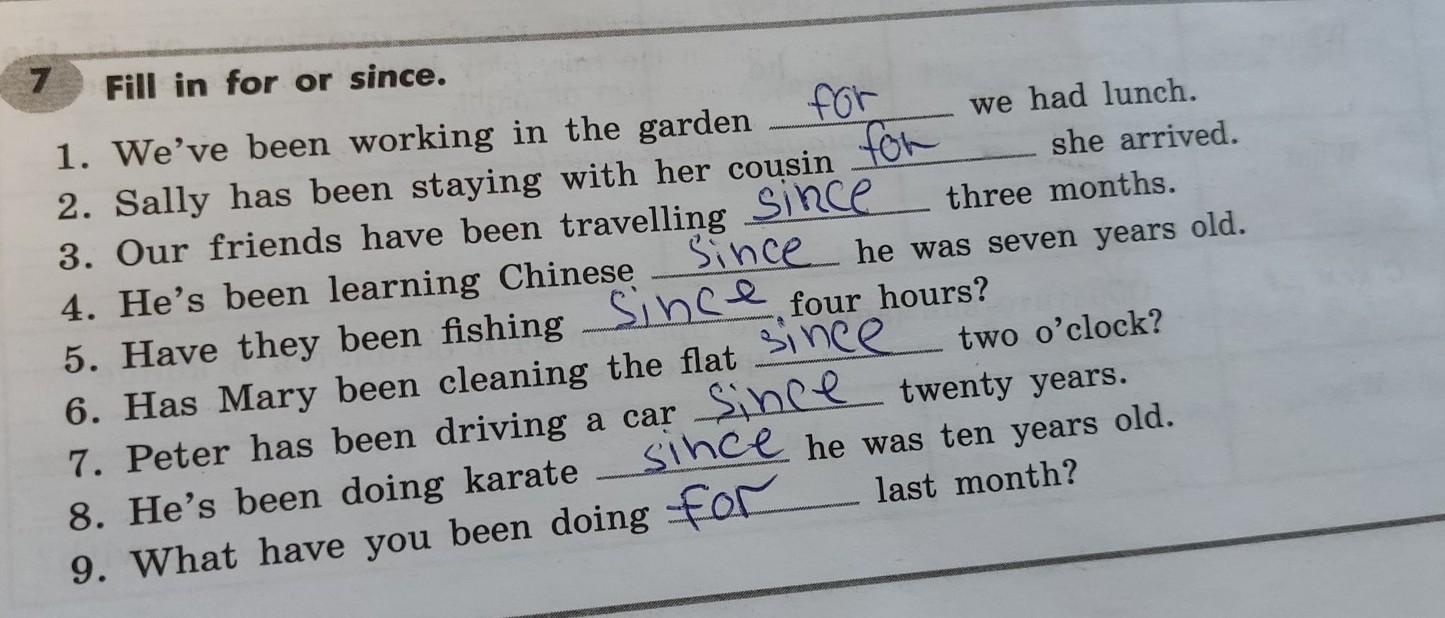 7 Fill in for or since.
1. We've been working in the garden for we had lunch.
2. Sally has been staying with her cousin for she arrived.
3. Our friends have been travelling since three months.
4. He's been learning Chinese since he was seven years old.
5. Have they been fishing since four hours?
6. Has Mary been cleaning the flat since two o'clock?
7. Peter has been driving a car since twenty years.
8. He's been doing karate since he was ten years old.
9. What have you been doing for last month?